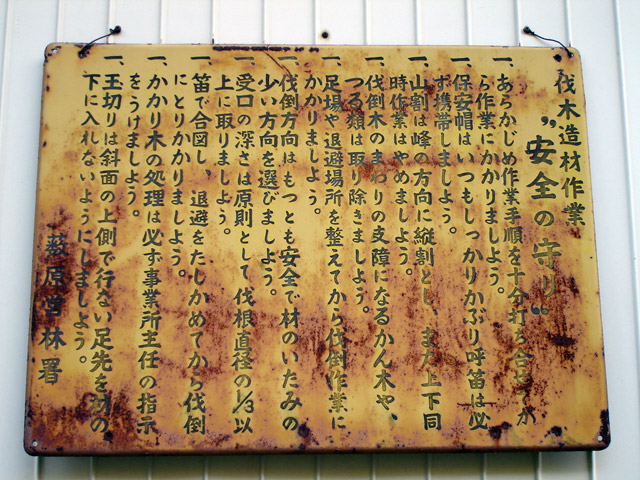 伐木造材作業
〝安全の守り〟
一、あらかじめ作業手順を十分打ち合せてか
ら作業にかかりましよう。
一、保安帽はいつもしつかりかぶり呼笛は必
ず携帯しましよう。
一、山割は峰の方向に縦割とし、また上下同
時作業はやめましよう。
一、伐倒木のまわりの支障になるかん木や、
つる類は取り除きましよう。
一、足場や退避場所を整えてから伐倒作業に
かかりましよう。
一、伐倒方向はもつとも安全で材のいたみの
少い方向を選びましよう。
一、受口の深さは原則として伐根直径の1/3以
上に取りましよう。
一、笛で合図し、退避をたしかめてから伐倒
にとりかかりましよう。
一、かかり木の処理は必ず事業所主任の指示
をうけましよう。
一、玉切りは斜面の上側で行ない足先を材の
下に入れないようにしましよう。
薮原営林署